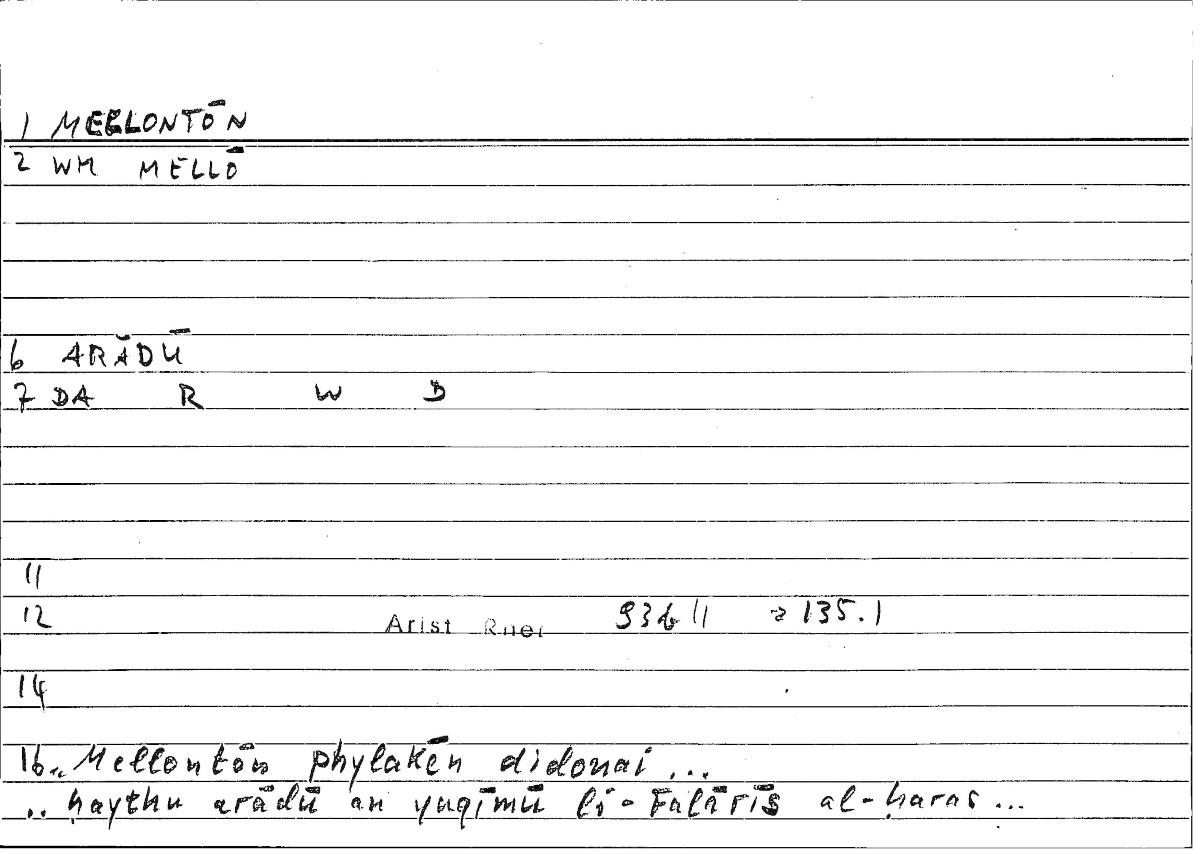 1 MELLONTŌN
2 WM MELLŌ
6 ARĀDŪ
7 DA R W D
11
12 Arist Rhet 93b11 → 135.1
14
16.. Mellontōn phylakēn didonai ...
.. ḥaythu arādū an yuqīmū li-Falārīs al-ḥaras ...